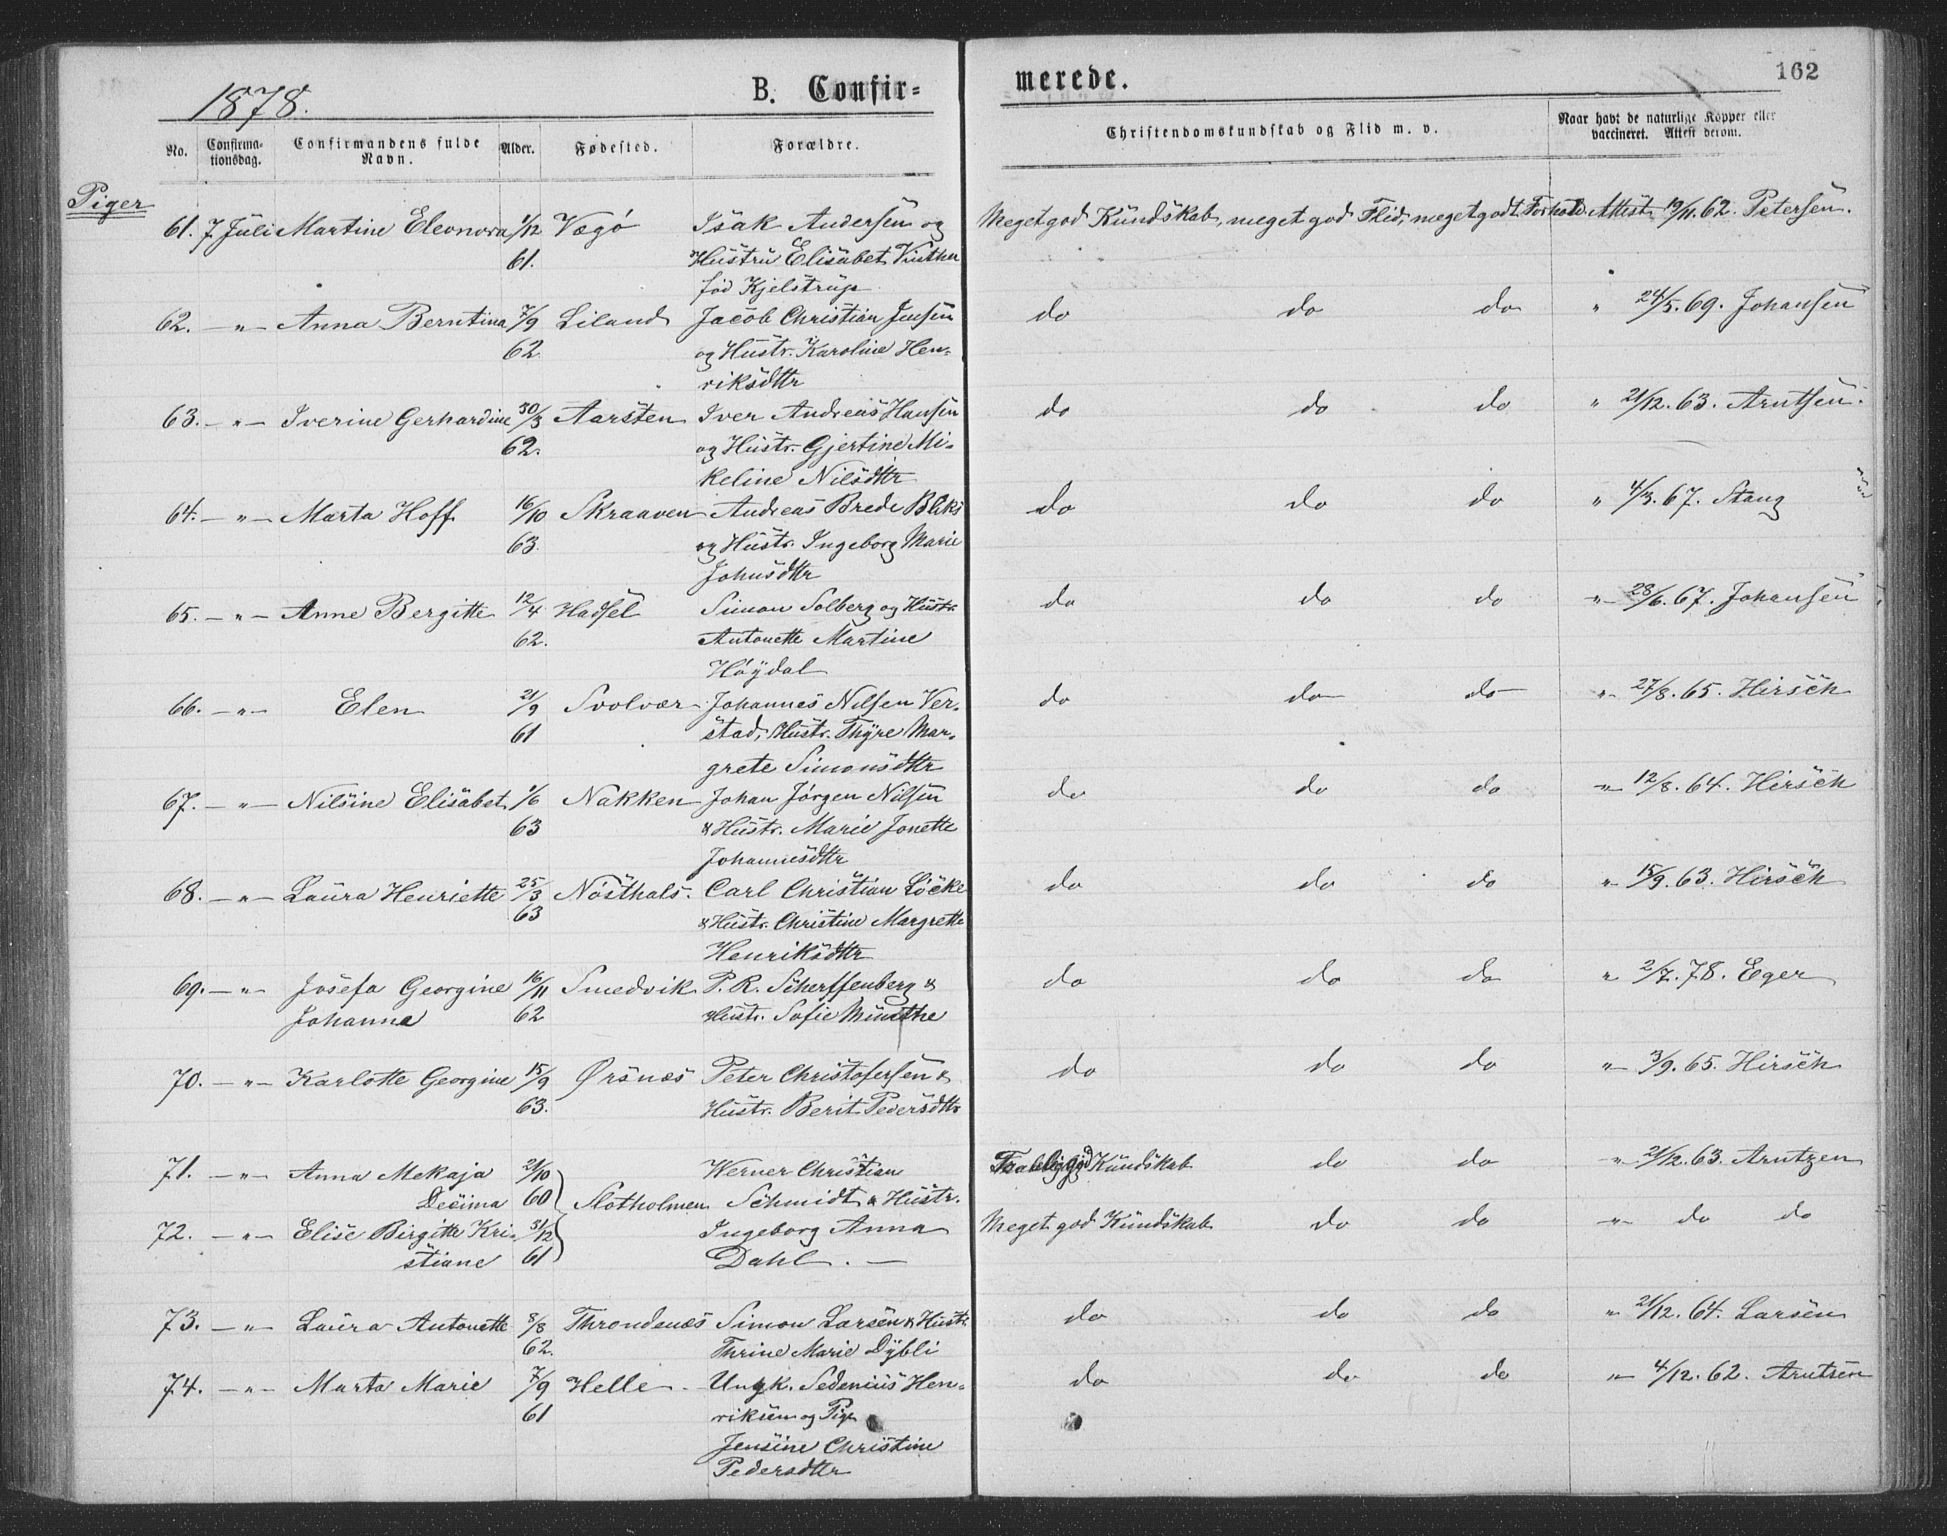 1878.
B. Confir=
merede.
162
No. Confirma-tionsdag. Confirmandens fulde Navn. Alder. Fødested. Forældre. Christendomskundskab og Flid m. v. Naar havt de naturlige Kopper eller vaccineret. Attest derom.
Piger
61. 7 Juli Martine Eleonora 1/12 Vægø Isak Andersen og Meget god Kundskab, meget god Flid, meget godt Forhold Attest 19/11. 62. Petersen.
61. Hustru Elisabet
fød Kjelstrup
62. - " - Anna Berntina 7/9 Liland Jacob Christian Jensen do do do " 24/5. 69. Johansen
62. og Hustr. Karoline Hen=
riksdttr
63. - " - Iverine Gerhardine 30/3 Aarsten Iver Andreas Hansen do do do " 21/12. 63. Arntsen.
62. og Hustr. Gjertine Mi=
keline Nilsdttr
64. - " - Marta Hoff 16/10 Skraaven Andreas Brede Bliks do do do " 4/3. 67. Stang
63. og Hustr. Ingeborg Marie
Johnsdttr
65. - " - Anne Bergitte 12/4 Hadsel Simon Solberg og Hustr. do do do " 28/6. 67. Johansen
62. Antonette Martine
Høydal
66. - " - Elen 21/9 Svolvær Johannes Nilsen Ver= do do do " 27/8. 65. Hirsch
61 stad, Hustr. Thyre Mar=
grete Simonsdttr
67. - " - Nilsine Elisabet 1/6 Nakken Johan Jørgen Nilsen do do do " 12/8. 64. Hirsch
63 & Hustr. Marie Jonette
Johannesdttr
68. - " - Laura Henriette 25/3 Nøsthals. Carl Christian Løcke do do do " 15/9. 63. Hirsch
63 & Hustr. Christine Margrette
Henriksdttr
69. - " - Josefa Georgine 16/11 Smedvik P. R. Scherffenberg & do do do " 2/7. 78. Eger
Johanna 62 Hustr. Sofie Münthe
70. - " - Karlotte Georgine 15/9 Ørsnes Peter Christofersen & do do do " 3/9. 65. Hirsch
63. Hustr. Berit Pedersdttr
71. - " - Anna Mekaja 21/10 Werner Christian Kundskab do do " 21/12. 63. Arntzen
Decima 60 Slotholmen Schmidt & Hustr.
72. - " - Elise Birgitte Kri= 31/12 Ingeborg Anna Meget god Kundskab do do " do do
stiane 61 Dahl. -
73. - " - Laura Antonette 8/8 Throndenæs Simon Larsen & Hustr. do do do " 21/12. 64. Larsen
62. Thrine Marie Dybli
74. - " - Marta Marie 7/9 Helle. Ungk. Sedenius Hen= do do do " 4/12. 62. Arntsen
61 riksen og Pige
Jensine Christine
Pedersdttr